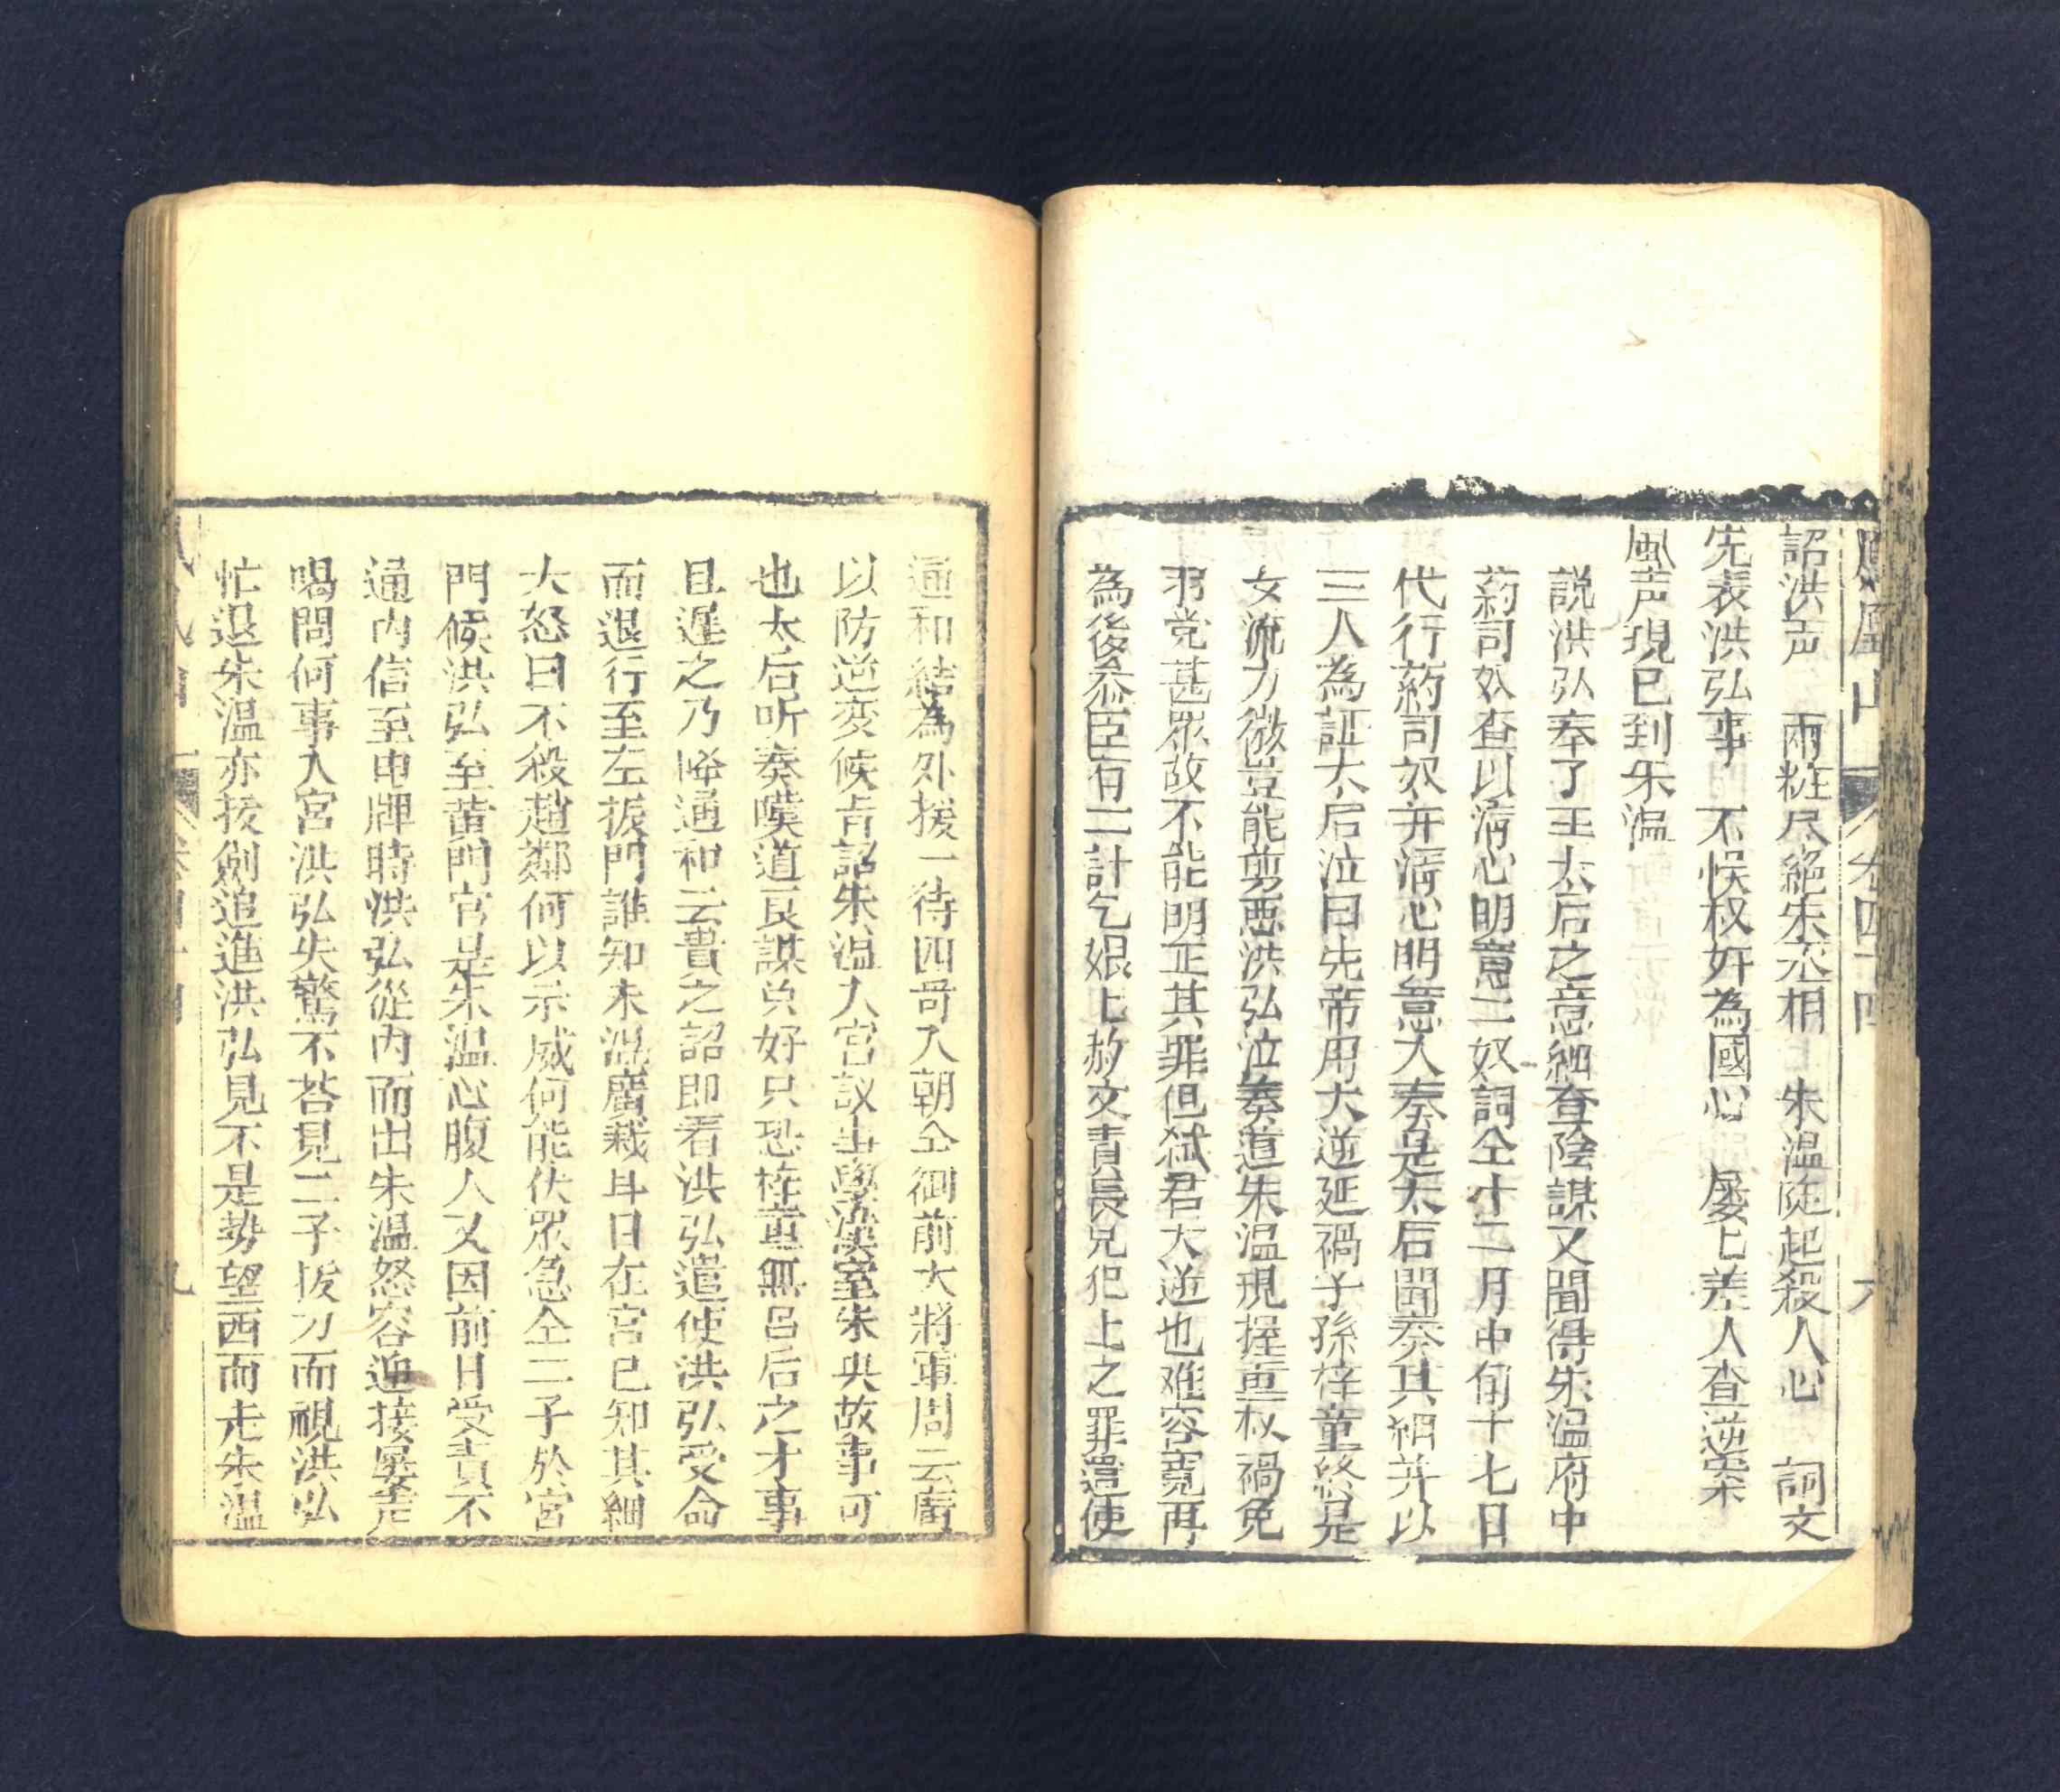 鳳凰山 卷四十四 六
詔洪声 兩粧尽絕朱丞相 朱溫陡起殺人心 詞文
先表洪弘事 不悮权奸為國心 屡上差人查逆案
風声現已到朱温
説洪弘奉了王太后之意細查陰謀又聞得朱温府中
葯司奴查以清心明意二奴詞仝十二月中旬十七日
代行葯司奴弃清心明意入奏是太后聞奏其細并以
三人為証太后泣曰先帝用大逆延禍子孫梓童終是
女流力微豈能剪恶洪弘泣奏道朱温現握重权禍免
羽党甚眾故不能明正其罪但弑君大逆也难容寬再
為後叅臣有二計乞娘上赦文責長兄犯上之罪遣使
通和結為外援一待四哥入朝仝御前大將軍周云廣
以防逆变候占詔朱温入宮設击學漢室朱央故事可
也太后听奏嘆道良謀只好只恐梓童無吕后之才事
且遲之乃降通和云貴之詔即着洪弘遣使洪弘受命
而退行至左掖門誰知未温廣栽耳日在宮已知其細
大怒曰不殺趙鄴何以示威何能伏眾急仝二子於宮
門候洪弘至黄門官是朱温心腹人又因前日受責不
通內信至申牌時洪弘從內而出朱温怒容迎接厲声
喝問何事入宮洪弘失驚不荅見二子拔刀而視洪弘
忙退朱温亦拔劍追進洪弘見不是势望西而走朱温
卷四十四